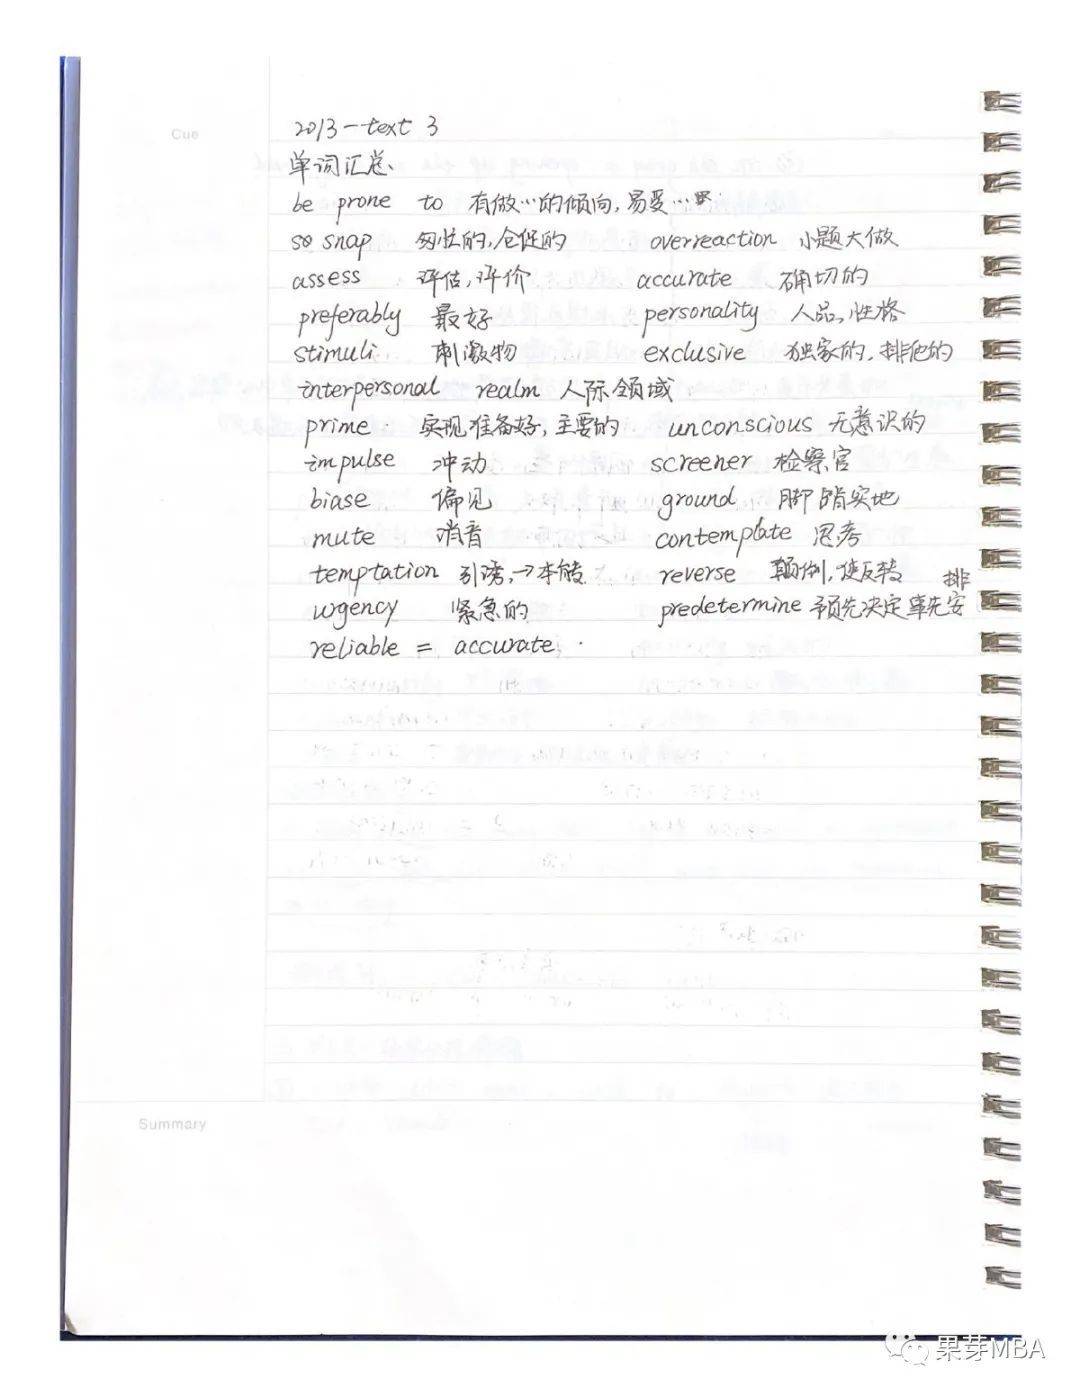 Cue
2013-text 3
单词汇总、
be prone to 有做…的倾向,易受…
snap 匆忙的,仓促的 overreaction 小题大做
assess 评估,评价 accurate 确切的
preferably 最好 personality 人品,性格
stimuli 刺激物 exclusive 独家的,排他的
interpersonal realm 人际领域
prime 实现准备好,主要的 unconscious 无意识的
impulse 冲动 screener 检察官
biase 偏见 ground 脚踏实地
mute 消音 contemplate 思考
temptation 引诱,→本能 reverse 颠倒,使反转
urgency 紧急的 predetermine 预先决定 事先安排
reliable = accurate
Summary
果芽MBA